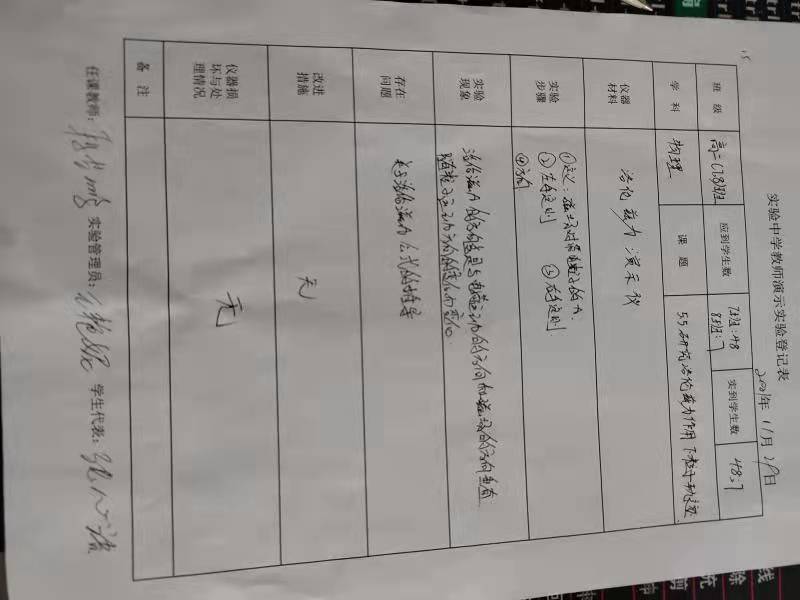 15
实验中学教师演示实验登记表
2021年 11月 29日
班 级 高二(7.8)班 应到学生数 7班:48 实到学生数 48:7
8班:7
学 科 物理 课 题 5.5研究洛伦兹力作用下
仪器材料 洛伦兹力演示仪
实验步骤 ①定义:磁场对带电粒子的力.
②左手定则 ③左手定则
④方向
实验现象 洛伦兹力的方向总是与电荷运动的方向和磁场的方向垂直
随粒子运动方向的变化而变化
存在问题 关于洛伦兹力公式的推导
改进措施 无
仪器损坏与处理情况 无
备 注
任课教师: 实验管理员: 学生代表:
线
除
充
剪